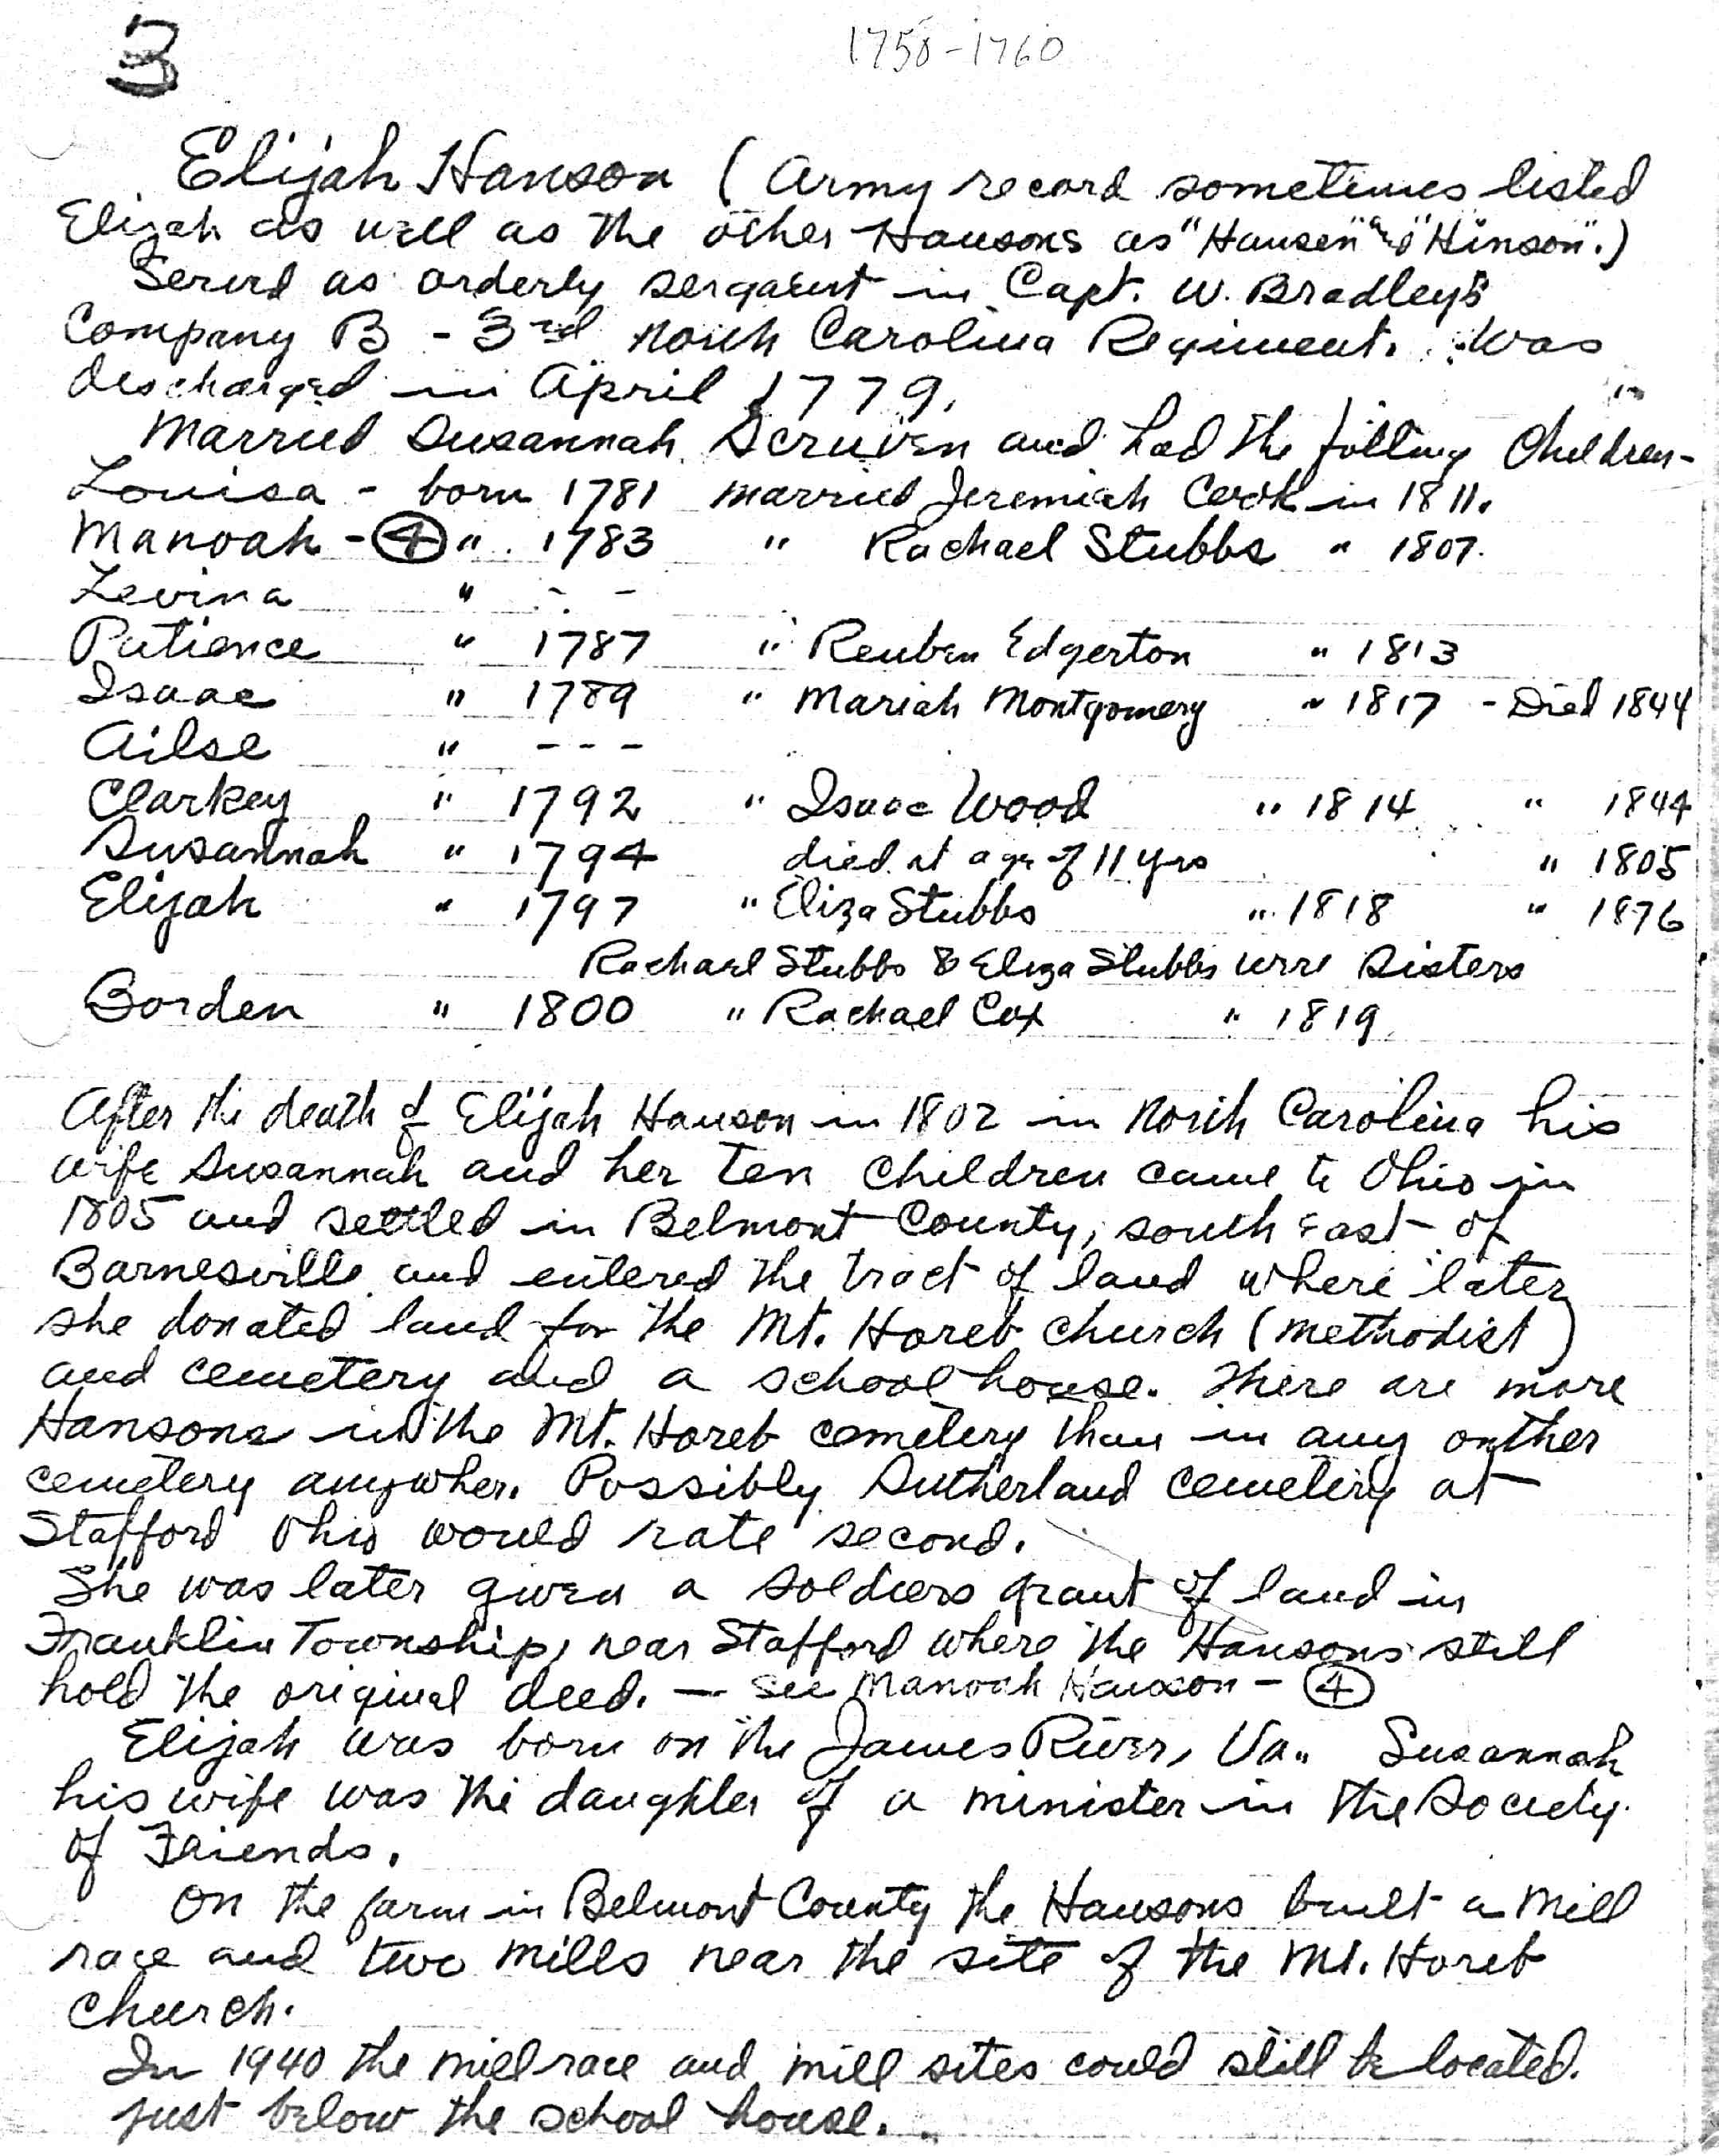 3
1750-1760
Elijah Hanson ( Army record sometimes listed
Elijah as well as the other Hansons as "Hansen" and "Hinson".)
Served as orderly sergaent in Capt. W. Bradleys
Company B - 3rd North Carolina Regiment. Was
discharged in April 1779.
Married Susannah Scruven and had the folling Children-
Louisa - born 1781 married Jeremiah Cook in 1811.
Manoah - 4 " 1783 " Rachael Stubbs " 1807.
Levina " - -
Patience " 1787 " Reuben Edgerton " 1813
Isaac " 1789 " Mariah Montgomery " 1817 - Died 1844
Ailse " - - -
Clarkey " 1792 " Isaac Wood " 1814 " 1844
Susannah " 1794 died at age of 11 yrs " 1805
Elijah " 1797 " Eliza Stubbs " 1818 " 1876
Rachael Stubbs & Eliza Stubbs were sisters
Borden " 1800 " Rachael Cox " 1819
After the death of Elijah Hanson in 1802 in North Carolina his
wife Susannah and her ten children came to Ohio in
1805 and settled in Belmont County, south east of
Barnesville and entered the tract of land where later
she donated land for the Mt. Horeb church (methodist)
and cemetery and a school house. There are more
Hansons in the Mt. Horeb cemetery than in any onther
cemetery anywher. Possibly Sutherland cemetery at
Stafford Ohio would rate second.
She was later given a soldiers grant of land in
Franklin Township, near Stafford where the Hansons still
hold the original deed. - See Manoah Hanson - 4
Elijah was born on the James River, Va.. Susannah
his wife was the daughter of a minister in the Society
of Friends.
On the farm in Belmont County the Hansons built a mill
race and two mills near the site of the Mt. Horeb
church.
In 1940 the mill race and mill sites could still be located.
just below the school house.